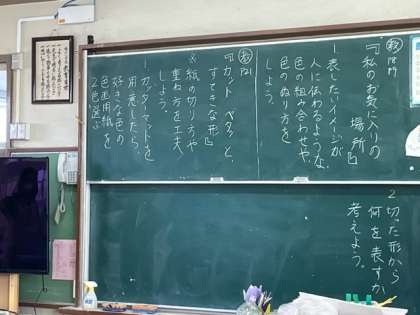 『私のお気に入りの
場所』
一表したいイメージが
人に伝わるような、
色の組み合わせや
色のぬり方を
しよう。
『カット ペタッと、
すてきな形』
※紙の切り方や
重ね方を工夫
しよう。
カッターマットを
用意したら、
好きな色の
色画用紙を
2色選ぶ
2 切った形から
何を表すか
考えよう。